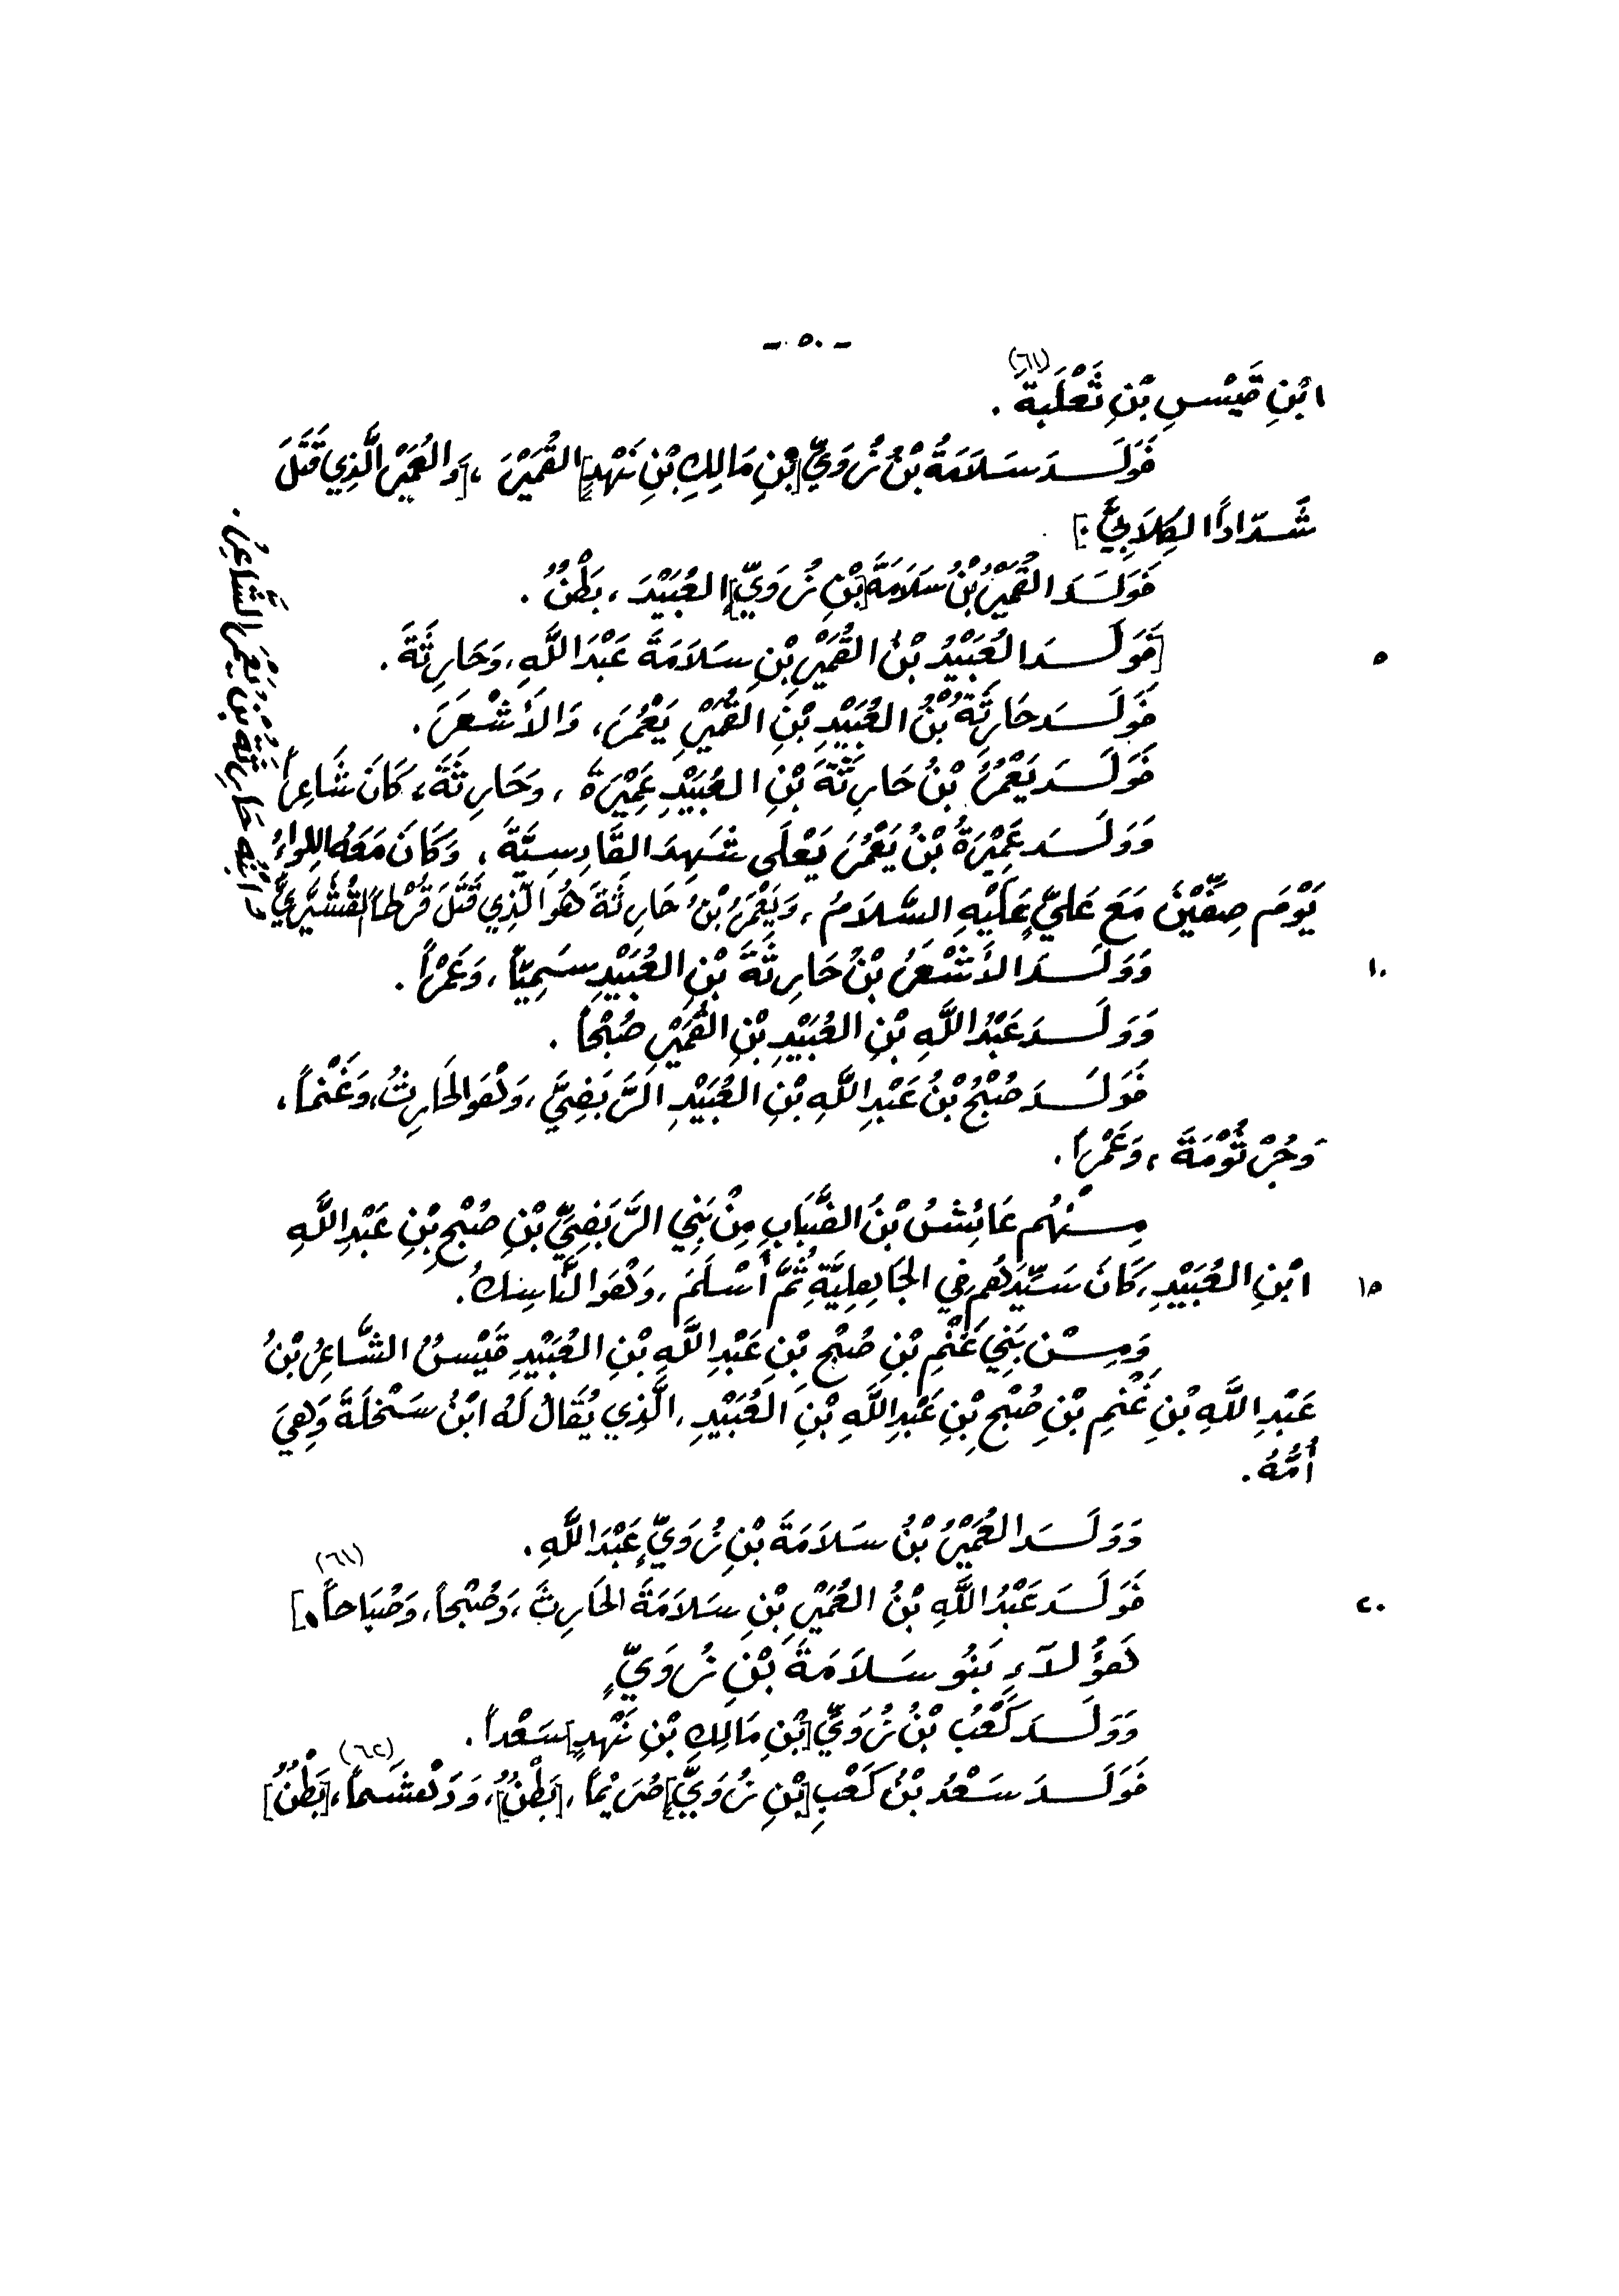 - ٥٠ -
ابْنِ قَيْسِ بْنِ ثَعْلَبَةَ (٦١).
فَوَلَدَ سَلَامَةُ بْنُ زُوَيٍّ [بْنِ مَالِكِ بْنِ نَهْدٍ] القُمَيْرَ، [وَالعُمَيْرَ الَّذِي قَتَلَ
شَدَّاداً الكِلَابِيَّ.]
فَوَلَدَ القُمَيْرُ بْنُ سَلَامَةَ [بْنِ زُوَيٍّ] العُبَيْدَ، بَطْنٌ.
[فَوَلَدَ العُبَيْدُ بْنُ القُمَيْرِ بْنِ سَلَامَةَ عَبْدَ اللَّهِ، وَحَارِثَةَ. ٥
فَوَلَدَ حَارِثَةُ بْنُ العُبَيْدِ بْنِ القُمَيْرِ يَعْمُرَ، وَالأَشْعَرَ.
فَوَلَدَ يَعْمُرُ بْنُ حَارِثَةَ بْنِ العُبَيْدِ عَمِيْرَةَ، وَحَارِثَةَ، كَانَ شَاعِراً
وَوَلَدَ عَمِيْرَةُ بْنُ يَعْمُرَ يَعْلَى شَهِدَ القَادِسِيَّةَ، وَكَانَ مَعَهُ اللِوَاءُ
يَوْمَ صِفِّيْنَ مَعَ عَلِيٍّ عَلَيْهِ السَّلَامُ، وَيَعْمُرُ بْنُ حَارِثَةَ هُوَ الَّذِي قَتَلَ قُرْطاً القُشَيْرِيَّ
وَابْنُهُ حَارِثَةُ بْنُ يَعْمَرَ الشَّاعِرُ.
وَوَلَدَ الأَشْعَرُ بْنُ حَارِثَةَ بْنِ العُبَيْدِ سَمِيّاً، وَعَمْراً. ١٠
وَوَلَدَ عَبْدُ اللَّهِ بْنِ العُبَيْدِ بْنِ القُمَيْرِ صُبْحاً.
فَوَلَدَ صُبْحُ بْنُ عَبْدِ اللَّهِ بْنِ العُبَيْدِ الرَّبَضِيَّ، وَهُوَ الحَارِثُ، وَغَنْماً،
وَجُرْثُوْمَةَ، وَعَمْراً.
مِنْهُم عَائِشُ بْنُ الضَّبَابِ مِنْ بَنِي الرَّبَضِيِّ بْنِ صُبْحِ بْنِ عَبْدِ اللَّهِ
ابْنِ العُبَيْدِ، كَانَ سَيِّدَهُم فِي الجَاهِلِيَّةِ ثُمَّ أَسْلَمَ، وَهُوَ النَّاسِكُ. ١٥
وَمِنْ بَنِي غَنْمِ بْنِ صُبْحِ بْنِ عَبْدِ اللَّهِ بْنِ العُبَيْدِ قَيْسُ الشَّاعِرُ بْنُ
عَبْدِ اللَّهِ بْنِ غَنْمِ بْنِ صُبْحِ بْنِ عَبْدِ اللَّهِ بْنِ العُبَيْدِ، الَّذِي يُقَالُ لَهُ ابْنُ سَخْلَةَ وَهِيَ
أُمُّهُ.
وَوَلَدَ العُمَيْرُ بْنُ سَلَامَةَ بْنِ زُوَيٍّ عَبْدَ اللَّهِ.
فَوَلَدَ عَبْدُ اللَّهِ بْنُ العُمَيْرِ بْنِ سَلَامَةَ الحَارِثَ، وَصُبْحاً، وَصُبَاحاً (٦١).] ٢٠
هَؤُلَاءِ بَنُو سَلَامَةَ بْنِ زُوَيٍّ
وَوَلَدَ كَعْبُ بْنُ زُوَيٍّ [بْنِ مَالِكِ بْنِ نَهْدٍ] سَعْداً.
فَوَلَدَ سَعْدُ بْنُ كَعْبِ [بْنِ زُوَيٍّ] صُرَيْماً، [بَطْنٌ]، وَدَهْشَماً (٦٢)، [بَطْنٌ]